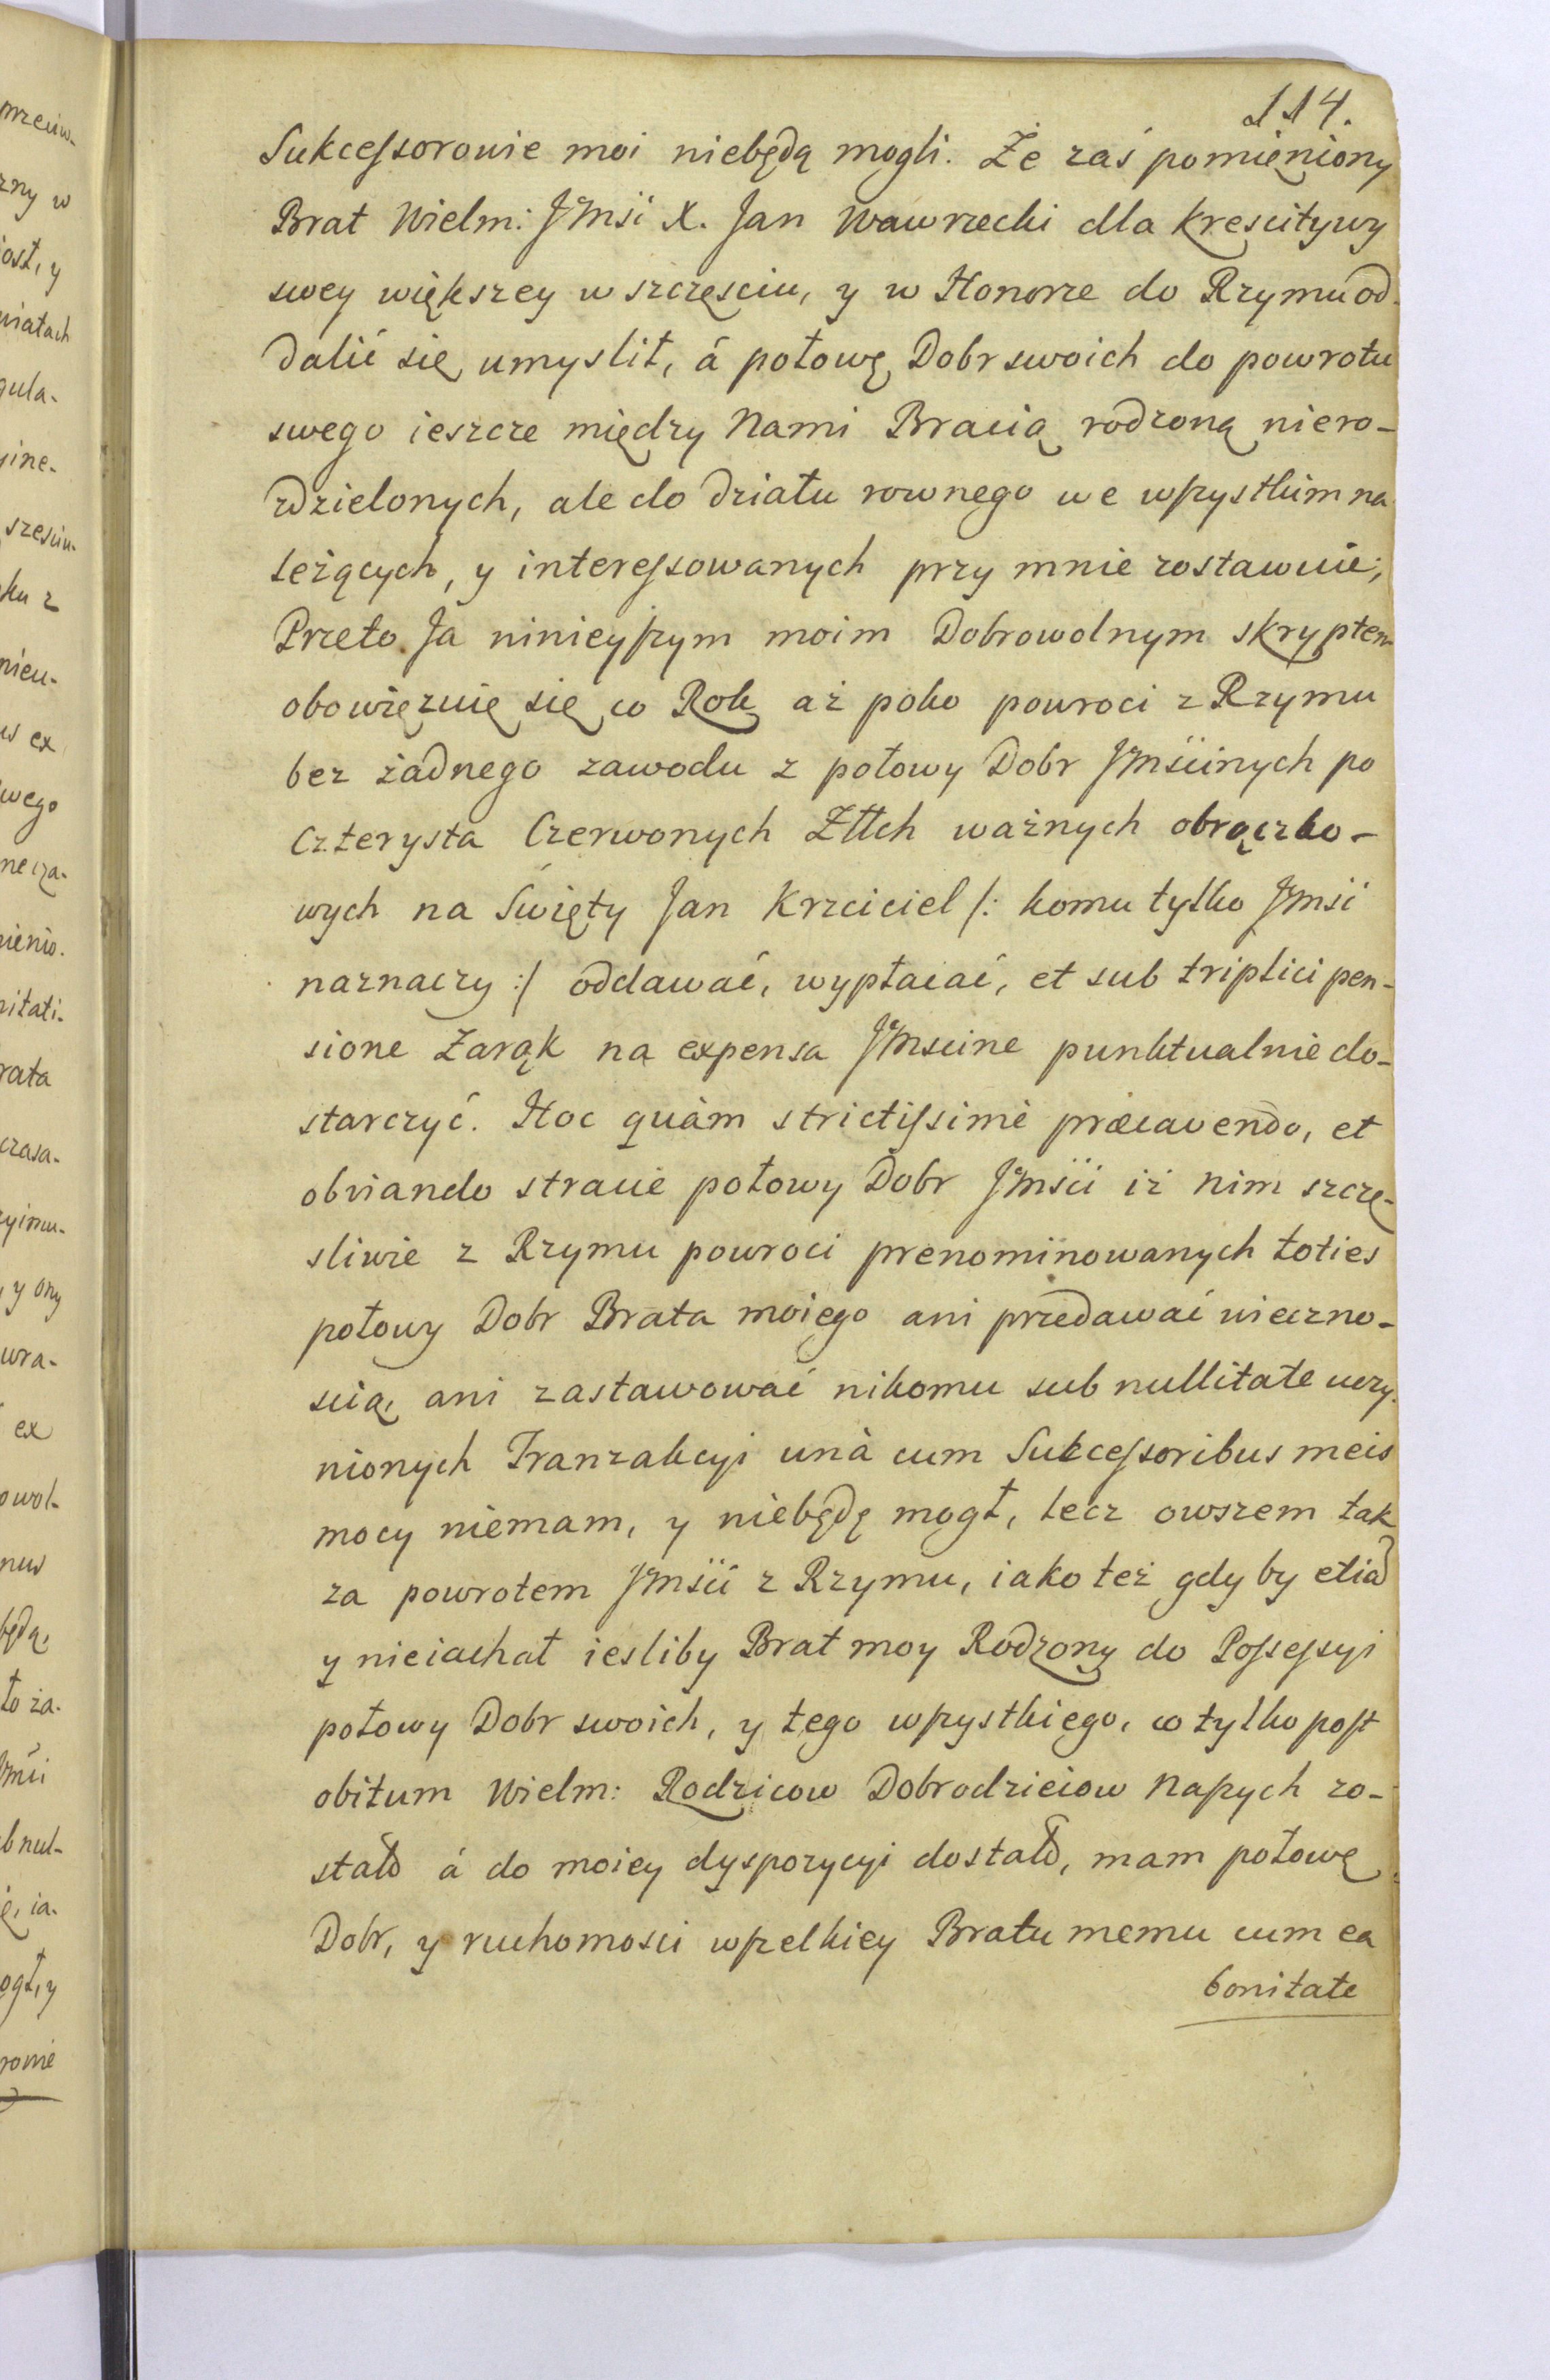 114.
Sukcessorowie moi niebędą mogli. Że zaś pomięniony
Brat Wielm: JMsći X. Jan Wawrzecki dla krescitywy
swey większey w szczęsciu, y w Honorze do Rzymu od-
dalić się umyslił, á połowę Dobr swoich do powrotu
swego ieszcze między Nami Bracią rodzoną niero-
zdzielonych, ale do działu rownego we wszystkim na
leżących, y interessowanych przy mnie zostawuie;
Przeto Ja ninieyszym moim Dobrowolnym skryptem
obowięzuię się co Rok aż poko powroci z Rzymu
bez żadnego zawodu z połowy Dobr JMsćinych po
Czterysta Czerwonych Złłch ważnych obrączko-
wych na Święty Jan Krzciciel /: komu tylko JMsći
naznaczy :/ oddawać, wypłacać, et sub triplici pen-
sione Zarąk na expensa JMscine punktualnie do-
starczyć. Hoc quàm strictissimè præcavendo, et
obviando stracie połowy Dobr JMsći iż nim szczę-
sliwie z Rzymu powroci prenominowanych toties
połowy Dobr Brata moiego ani przedawać wieczno-
scią, ani zastawować nikomu sub nullitate uczy-
nionych Tranzakcyi unà cum Sukcessoribus meis
mocy niemam, y niebędę mogł, lecz owszem tak
za powrotem JMsći z Rzymu, iako też gdy by etiã
y nieiachał iesliby Brat moy Rodzony do Possessyi
połowy Dobr swoich, y tego wszystkiego, co tylko post
obitum Wielm: Rodzicow Dobrodzieiow Naszych zo-
stało á do moiey dyspozycyi dostało, mam połowę
Dobr, y ruchomosci wszelkiey Bratu memu cum ea
bonitate